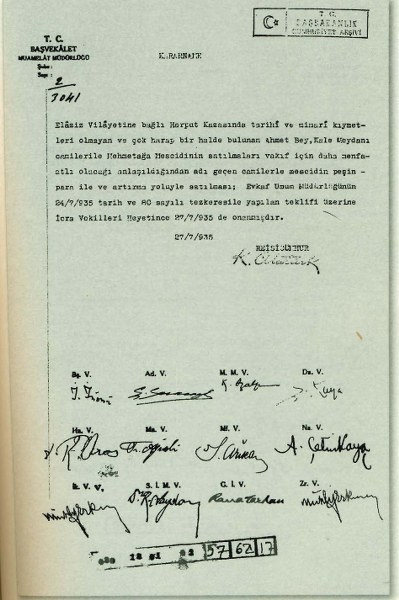 T. C.
BAŞVEKÂLET
MUAMELÂT MÜDÜRLÜĞÜ
Şube :
Sayı :
2
3041
T. C.
BAŞBAKANLIK
CUMHURİYET ARŞİVİ
KARARNAME
Elâziz Vilâyetine bağlı Harput Kazasında tarihî ve mimarî kıymet-
leri olmayan ve çok harap bir halde bulunan Ahmet Bey, Kale Meydanı
camilerile Mehmetağa Mescidinin satılmaları vakıf için daha menfa-
atli olacağı anlaşıldığından adı geçen camilerle mescidin peşin
para ile ve artırma yoluyle satılması; Evkaf Umum Müdürlüğünün
24/7/935 tarih ve 80 sayılı tezkeresile yapılan teklifi üzerine
İcra Vekilleri Heyetince 27/7/935 de onanmıştır.
27/7/935
REİSİCUMHUR
K. Atatürk
Bş. V.
Ad. V.
M. M. V.
Da. V.
İ. İnönü
Ş. Kaya
Ha. V.
Ma. V.
Mf. V.
Na. V.
R. Aras
A. Çetinkaya
İk. V. V.
S. İ. M. V.
G. İ. V.
Zr. V.
Rana Tarhan
030 18 01 02 57 62 17